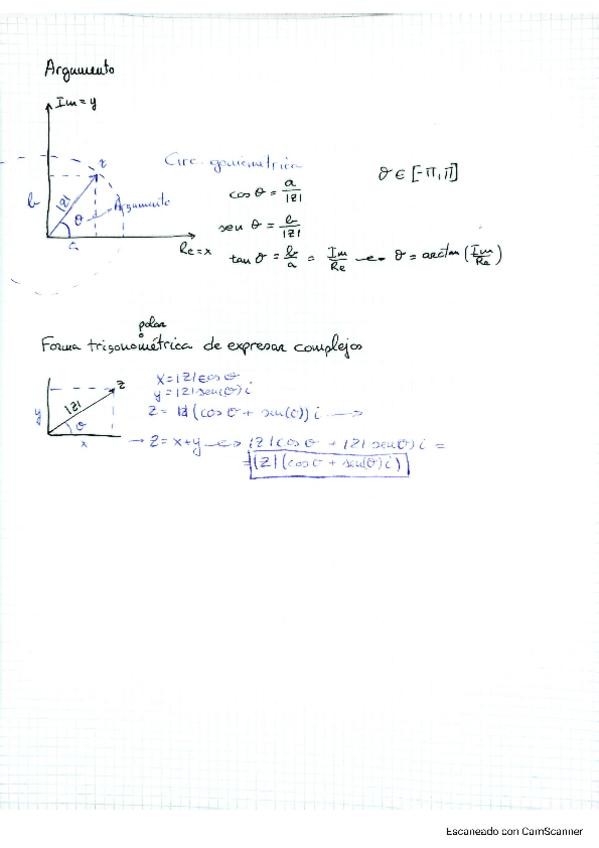 Argumento
Im = y
z
Circ. goniometrica
θ ∈ [-π, π]
b
|z|
θ
Argumento
cos θ = a/|z|
sen θ = b/|z|
a
Re = x
tan θ = b/a = Im/Re → θ = arctan (Im/Re)
polar
Forma trigonométrica o de expresar complejos
z
|z|
y
θ
x
x = |z| cos θ
y = |z| sen(θ) i
z = |z| (cos θ + sen(θ)) i →
→ z = x + y → |z| cos θ + |z| sen(θ) i =
= |z| (cos θ + sen(θ) i)
Escaneado con CamScanner